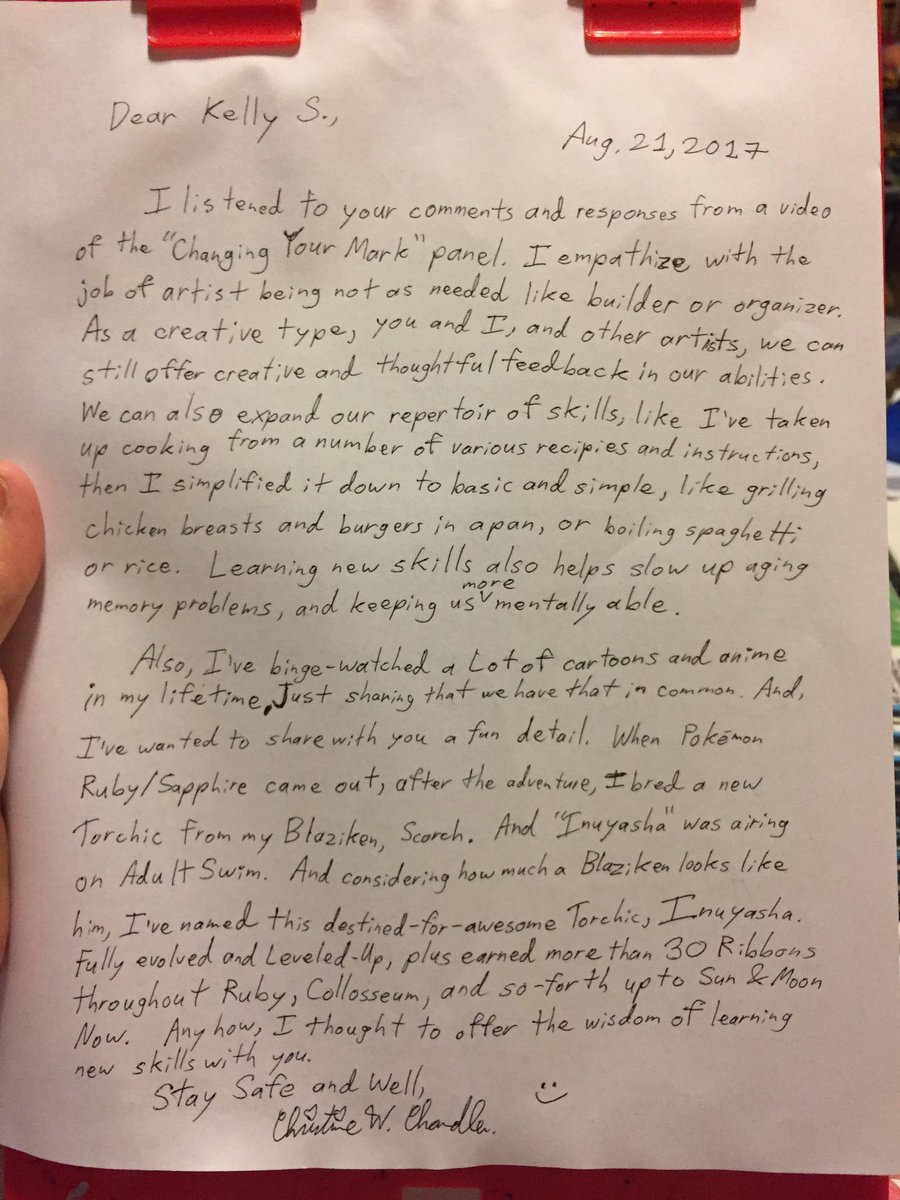 Dear Kelly S.,
Aug. 21, 2017
I listened to your comments and responses from a video
of the "Changing Your Mark" panel. I empathize with the
job of artist being not as needed like builder or organizer.
As a creative type, you and I, and other artists, we can
still offer creative and thoughtful feedback in our abilities.
We can also expand our repertoir of skills, like I've taken
up cooking from a number of various recipies and instructions,
then I simplified it down to basic and simple, like grilling
chicken breasts and burgers in a pan, or boiling spaghetti
or rice. Learning new skills also helps slow up aging
memory problems, and keeping us more mentally able.
Also, I've binge-watched a Lot of cartoons and anime
in my lifetime, Just sharing that we have that in common. And,
I've wanted to share with you a fun detail. When Pokémon
Ruby/Sapphire came out, after the adventure, I bred a new
Torchic from my Blaziken, Scorch. And "Inuyasha" was airing
on Adult Swim. And considering how much a Blaziken looks like
him, I've named this destined-for-awesome Torchic, Inuyasha.
Fully evolved and Leveled-Up, plus earned more than 30 Ribbons
throughout Ruby, Collosseum, and so-forth up to Sun & Moon
Now. Anyhow, I thought to offer the wisdom of learning
new skills with you.
Stay Safe and Well, :)
Christine W. Chandler.